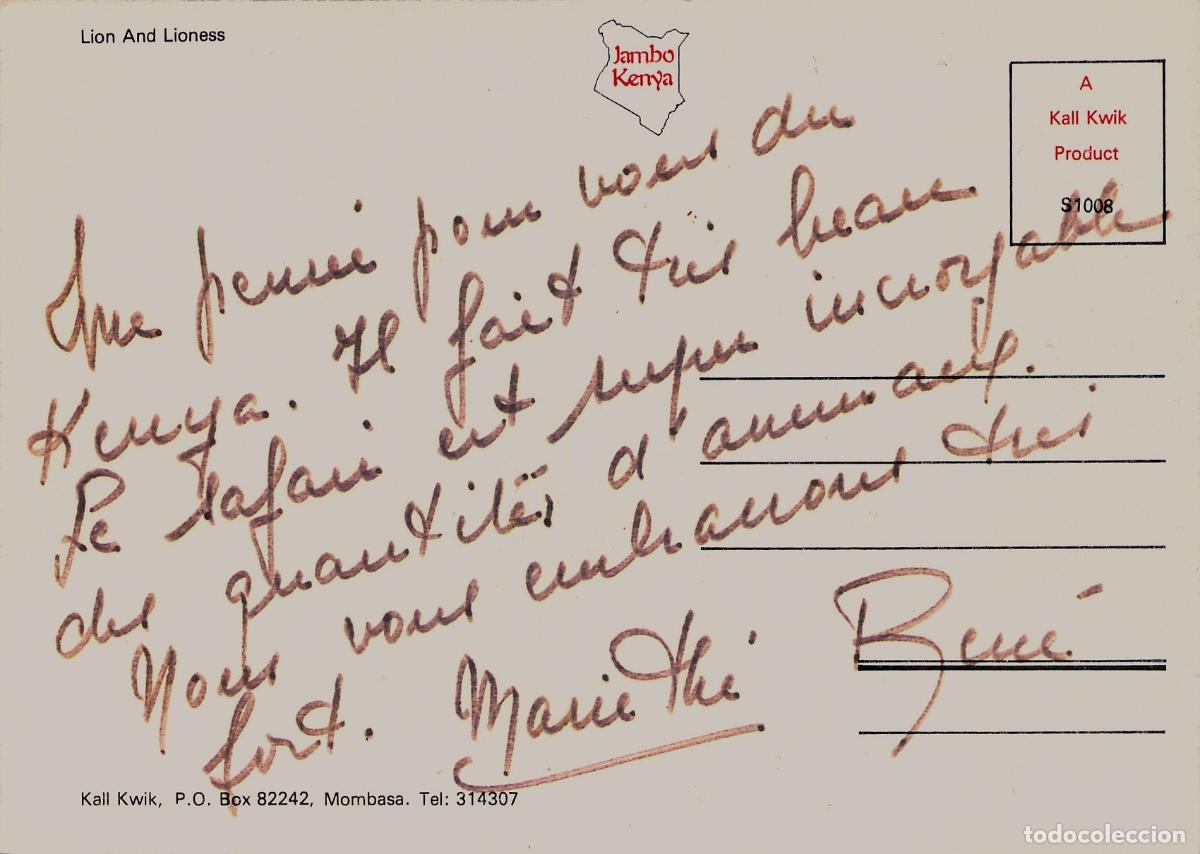 Lion And Lioness
Jambo
Kenya
A
Kall Kwik
Product
S1008
Une pensée pour vous du
Kenya. Il fait très beau
Le safari est super incroyable
des quantités d'animaux.
Nous vous embrassons très
fort. Marie Thé René
Kall Kwik, P.O. Box 82242, Mombasa. Tel: 314307
todocoleccion